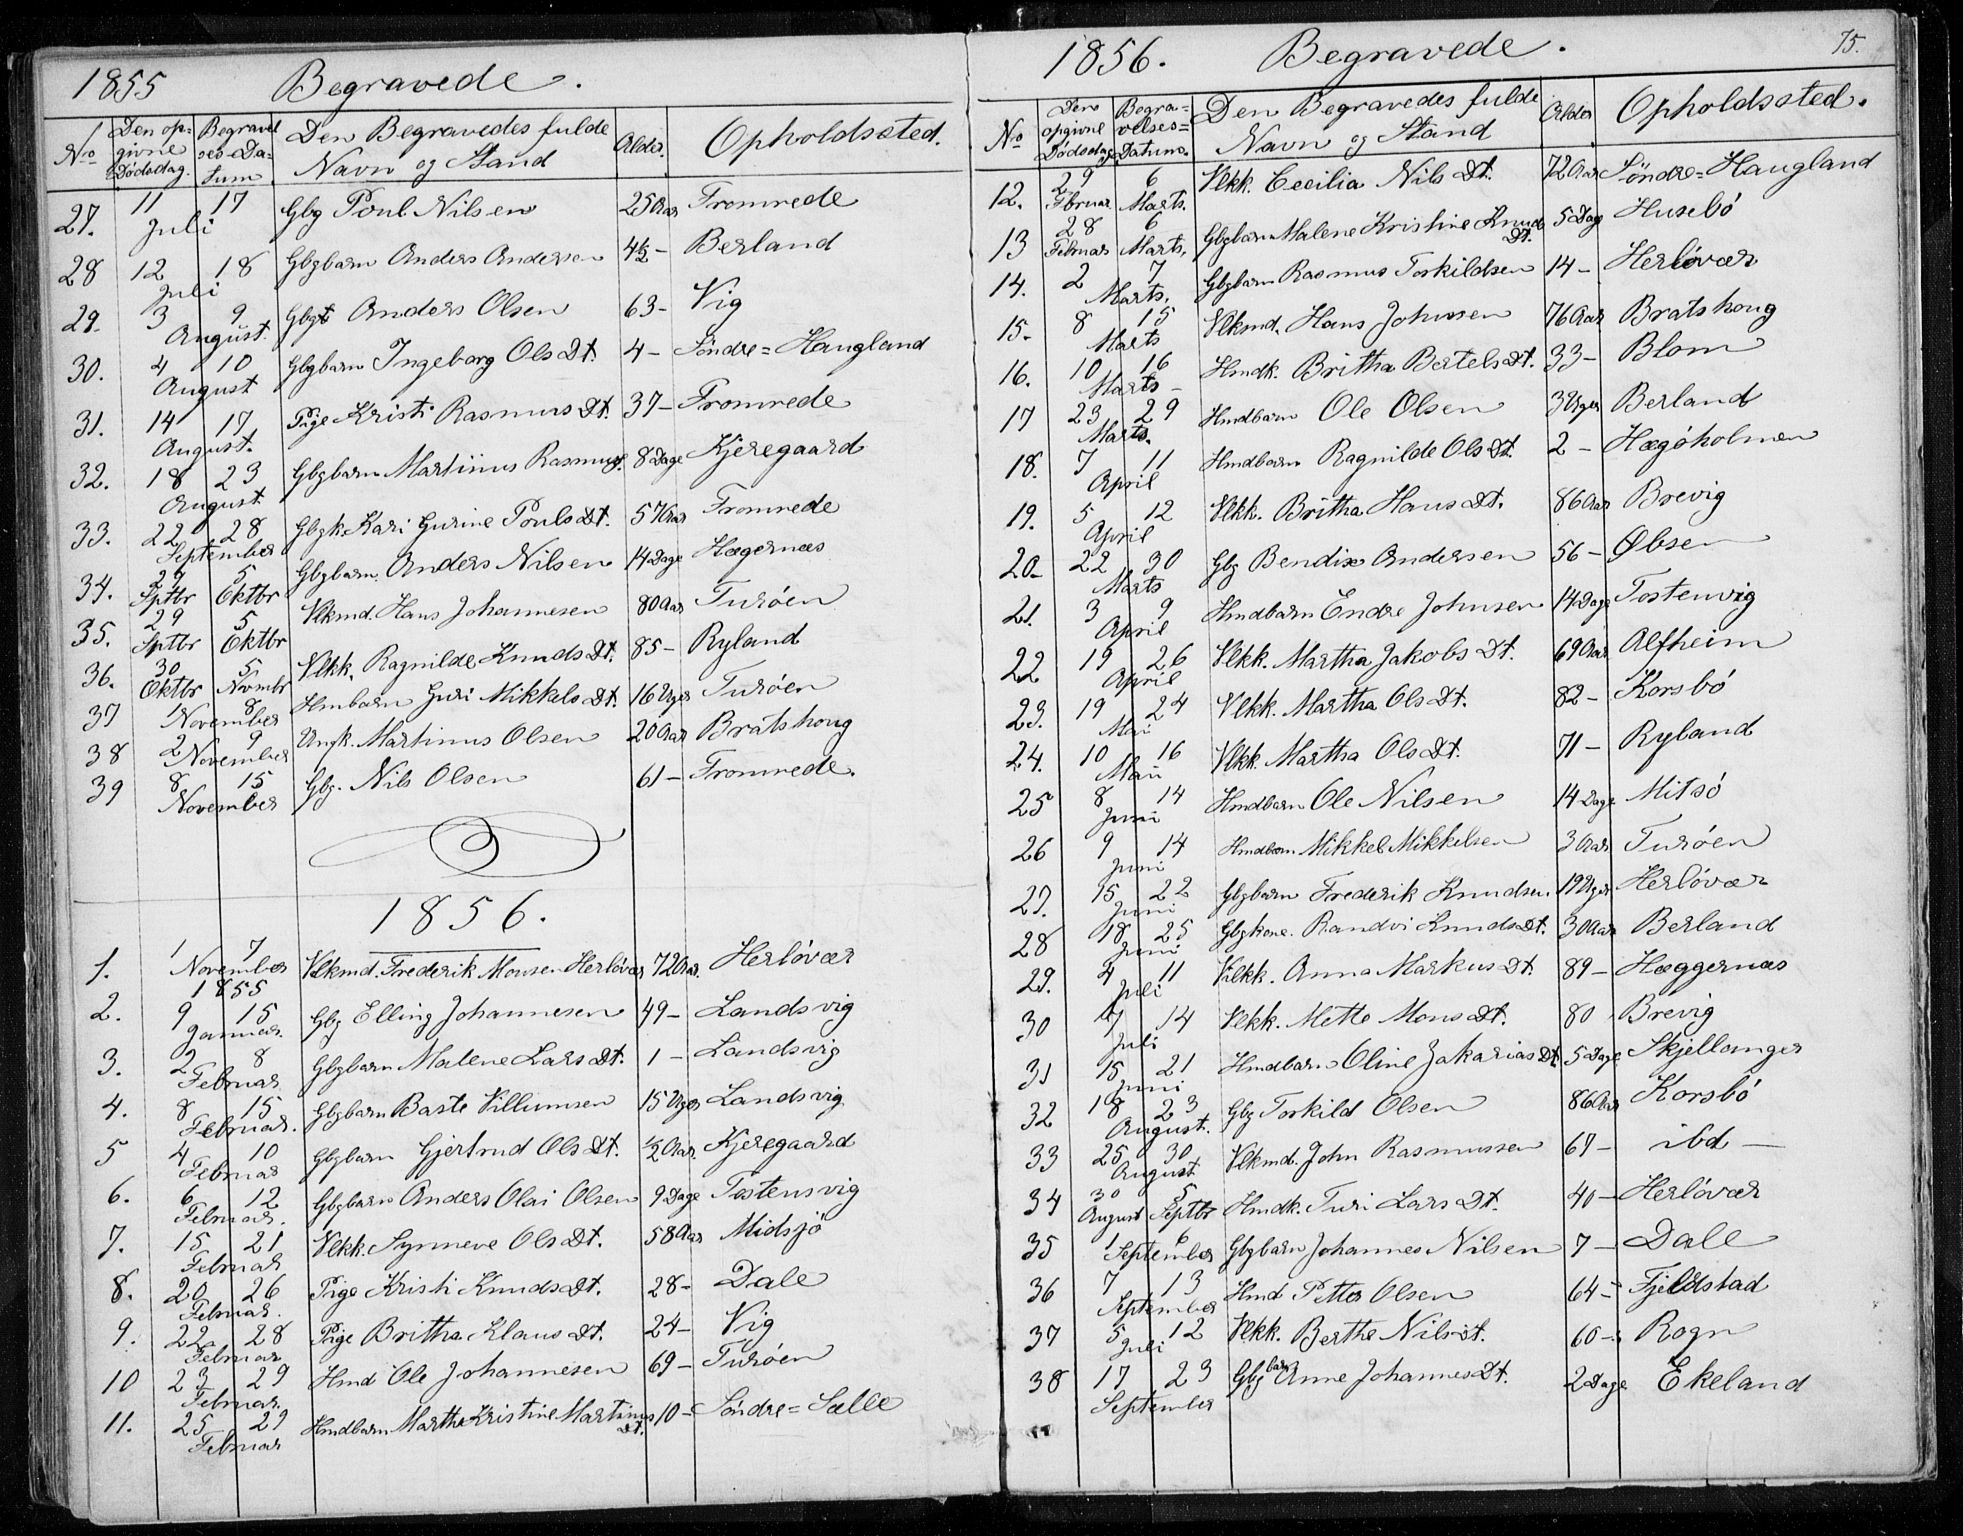 1855 Begravede.
No Den opgivne Dødsdag. Begravelses-Datum Den Begravedes fulde Navn og Stand Alder. Opholdssted.
27. 11 Juli 17 Gbg Poul Nilsen 25 Aar Fromrede
28 12 Juli 18 Gbgbarn Anders Andersen 4½ - Berland
29. 3 August. 9 Gbg Anders Olsen 63 - Vig
30. 4 August 10 Gbgbarn Ingeborg Ols Dt. 4 - Söndre = Haugland
31. 14 August. 17 Pige Kristi Rasmus Dt. 37 - Fromrede
32. 18 August. 23 Gbgbarn Martinus Rasmus. 8 Dage Kjeregaard
33. 22 September 28 Gbgk Kari Gurine Pouls Dt. 57 Aar Fromrede
34. 29 Sptbr 5 Oktbr Gbgbarn. Anders Nilsen 14 Dage Hægernæs
35. 29 Sptbr 5 Oktbr Vlkmd. Hans Johannesen 80 Aar Turöen
36. 30 Oktbr 5 Novmbr Vlkk. Ragnilde Knuds Dt. 85 - Ryland
37 1 November 8 Hmbarn Guri Mikkels Dt. 16 Uger Turöen
38 2 November 9 Ungk. Martinus Olsen 20 Aar Bratshoug
39 8 November 15 Gbg. Nils Olsen 61 - Fromrede.
1856.
1. 1 November 1855 7 Vlkmd. Frederik Monsen Herlövær 72 Aar. Herlövær
2. 9 Januar. 15 Gbg Elling Johannesen 49 - Landsvig
3. 2 Februar 8 Gbgbarn Malene Lars Dt. 1 - Landsvig
4. 8 Februar. 15 Gbgbarn Baste Villumsen 15 Uger Landsvig
5 4 Februar 10 Gbgbarn Gjertrud Ols Dt. ½ Aar. Kjeregaard
6. 6 Februar. 12 Gbgbarn Anders Olai Olsen 9 Dage Tostensvig
7. 15 Februar 21 Vlkk. Synneve Ols Dt. 58 Aar Midsjö
8. 20 Februar. 26 Pige Kristi Knuds Dt. 28 - Dale
9. 22 Februar 28 Pige Britha Klaus Dt. 24 - Vig
10 23 Februar. 29 Hmd Ole Johannesen 69 - Turöen
11. 25 Februar 29 Hmdbarn Martha Kristine Martinus Dt. 10 - Söndre = Sælle
1856. Begravede. 75.
No Den opgivne Dødsdag. Begravelses = Datum. Den Begravedes fulde Navn og Stand Alder Opholdssted.
12. 29 Februar 6 Marts. Vlkk. Cecilia Nils Dt. 72 Aar Söndre = Haugland
13 28 Februar 6 Marts. Gbgbarn Malene Kristine Knuds Dt. 5 Dag Husebö
14. 2 Marts. 7 Gbgbarn Rasmus Torkildsen 14 - Herlövær
15. 8 Marts 15 Vlkmd. Hans Johnsen 76 Aar Bratshoug
16. 10 Marts - 16 Hmdk. Britha Bertels Dt. 33 - Blom
17 23 Marts. 29 Hmdbarn Ole Olsen 3 Uger Berland
18. 7 April 11 Hmdbarn Ragnilde Ols Dt. 2 - Hægöholmen
19. 5 April 12 Vlkk. Britha Hans Dt. 86 Aar Brevig
20. 22 Marts 30 Gbg Bendix Andersen 56 - Øbsen
21. 3 April 9 Hmdbarn Endre Johnsen 14 Dage Tostenvig
22 19 April 26 Vlkk. Martha Jakobs Dt. 69 Aar Alfheim
23. 19 Mai 24 Vlkk. Martha Ols Dt. 82 - Korsbö
24. 10 Mai 16 Vlkk. Martha Ols Dt. 71 - Ryland
25 8 Juni 14 Hmdbarn Ole Nilsen 14 Dage Mitsö
26 9 Juni 14 Hmdbarn Mikkel Mikkelsen 3 Aar Turöen
27. 15 Juni 22 Gbgbarn Frederik Knudsen. 19 Uger Herlövær
28 18 Juni 25 Gbgkone. Randvi Knuds Dt. 30 Aar Berland
29. 4 Juli 11 Vlkk. Anna Markus Dt. 89 - Hæggernæs
30 7 Juli 14 Vlkk. Mette Mons Dt. 80 Brevig
31 15 Juni 21 Hmdbarn Oline Zakarias Dt. 5 Dage Skjellanger
32 18 August. 23 Gbg Torkild Olsen 86 Aar Korsbö
33 25 August 30 Vlkmd. John Rasmussen 67 - ibd -
34 30 August 5 Septbr Hmdk. Turi Lars Dt. 40 - Herlövær
35 1 September 6 Gbgbarn Johannes Nilsen 7 - Dale
36 7 September 13 Hmd Petter Olsen 64 - Fjeldstad
37 5 Juli 12 Vlkk. Berthe Nils Dt. 60 - Rogn
38 17 September 23 Gbgbarn Anne Johannes Dt. 2 Dage Ekeland